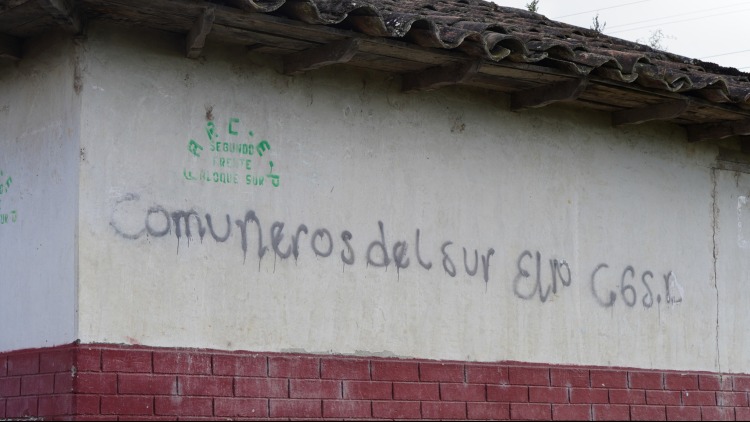 F.A.R.C-E.P
SEGUNDO
FRENTE
BLOQUE SUR
Comuneros del sur Eln